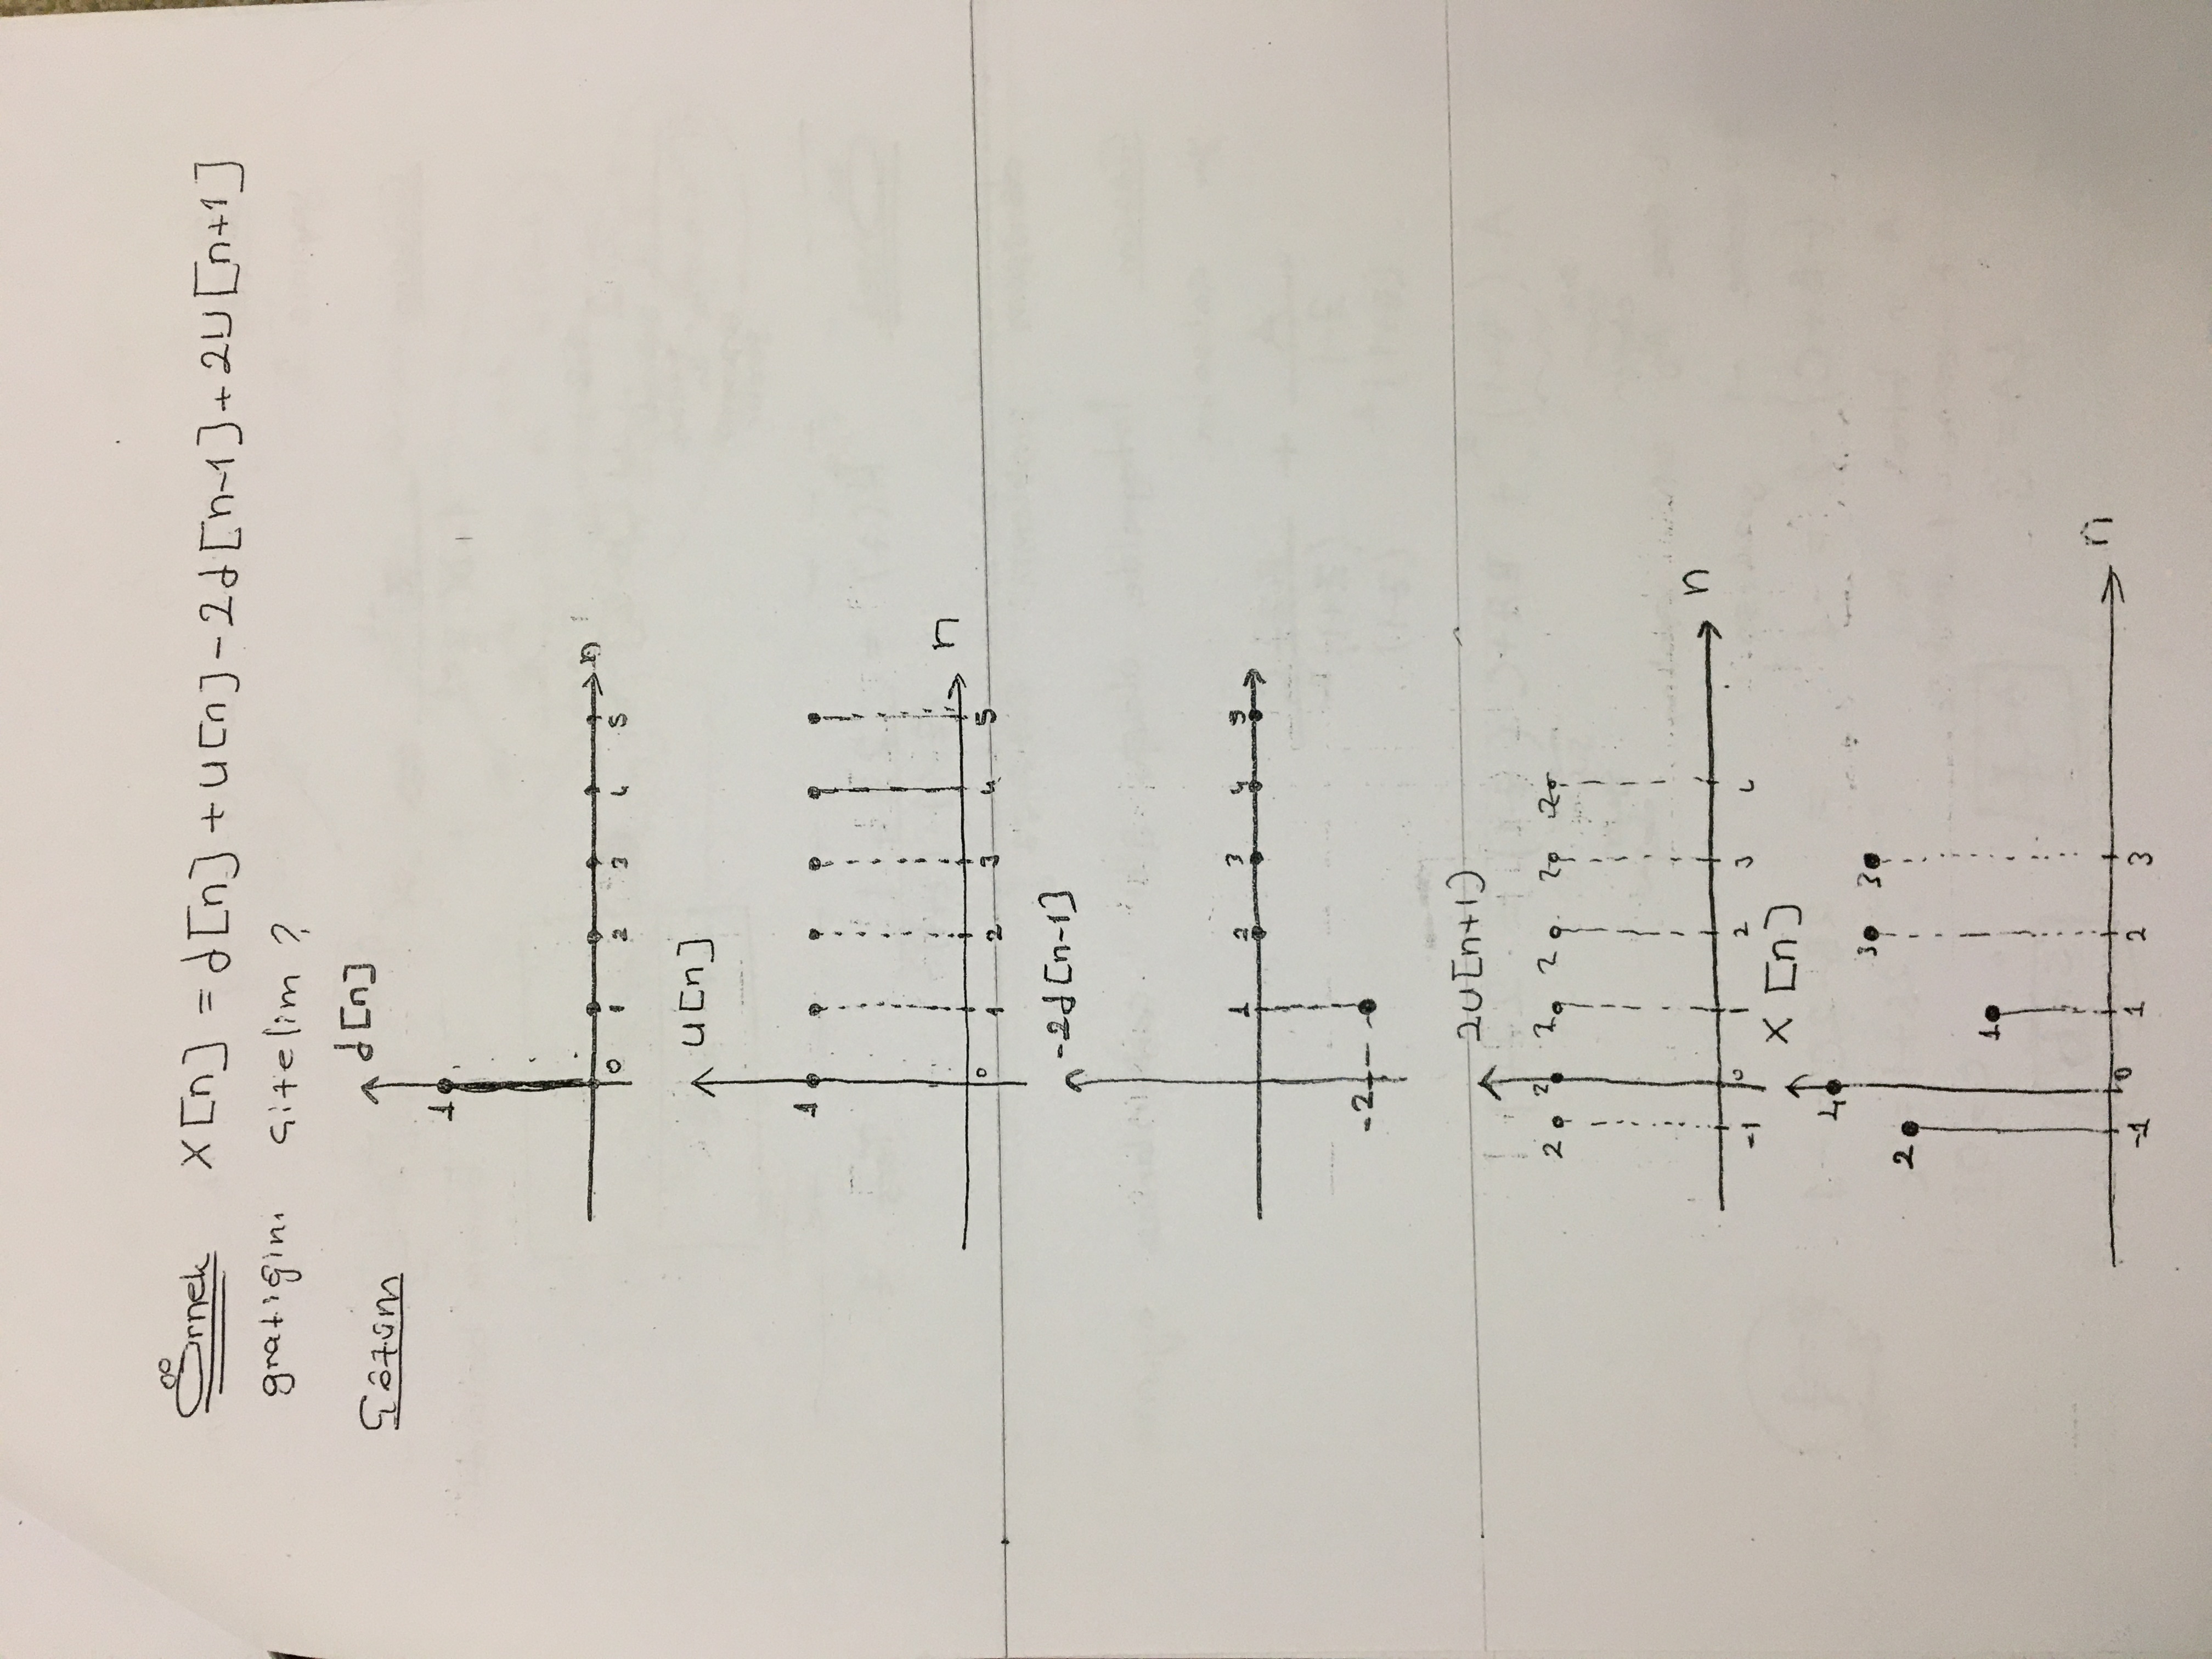 Örnek x[n] = d[n] + u[n] - 2d[n-1] + 2u[n+1]
grafiğini çizelim ?
Çözüm
d[n]
1
n
0 1 2 3 4 5
u[n]
1
n
0 1 2 3 4 5
-2d[n-1]
1 2 3 4 5
-2
2u[n+1)
2 2 2 2 2 2
n
-1 0 1 2 3 4
x[n]
4
3 3
2
1
n
-1 0 1 2 3